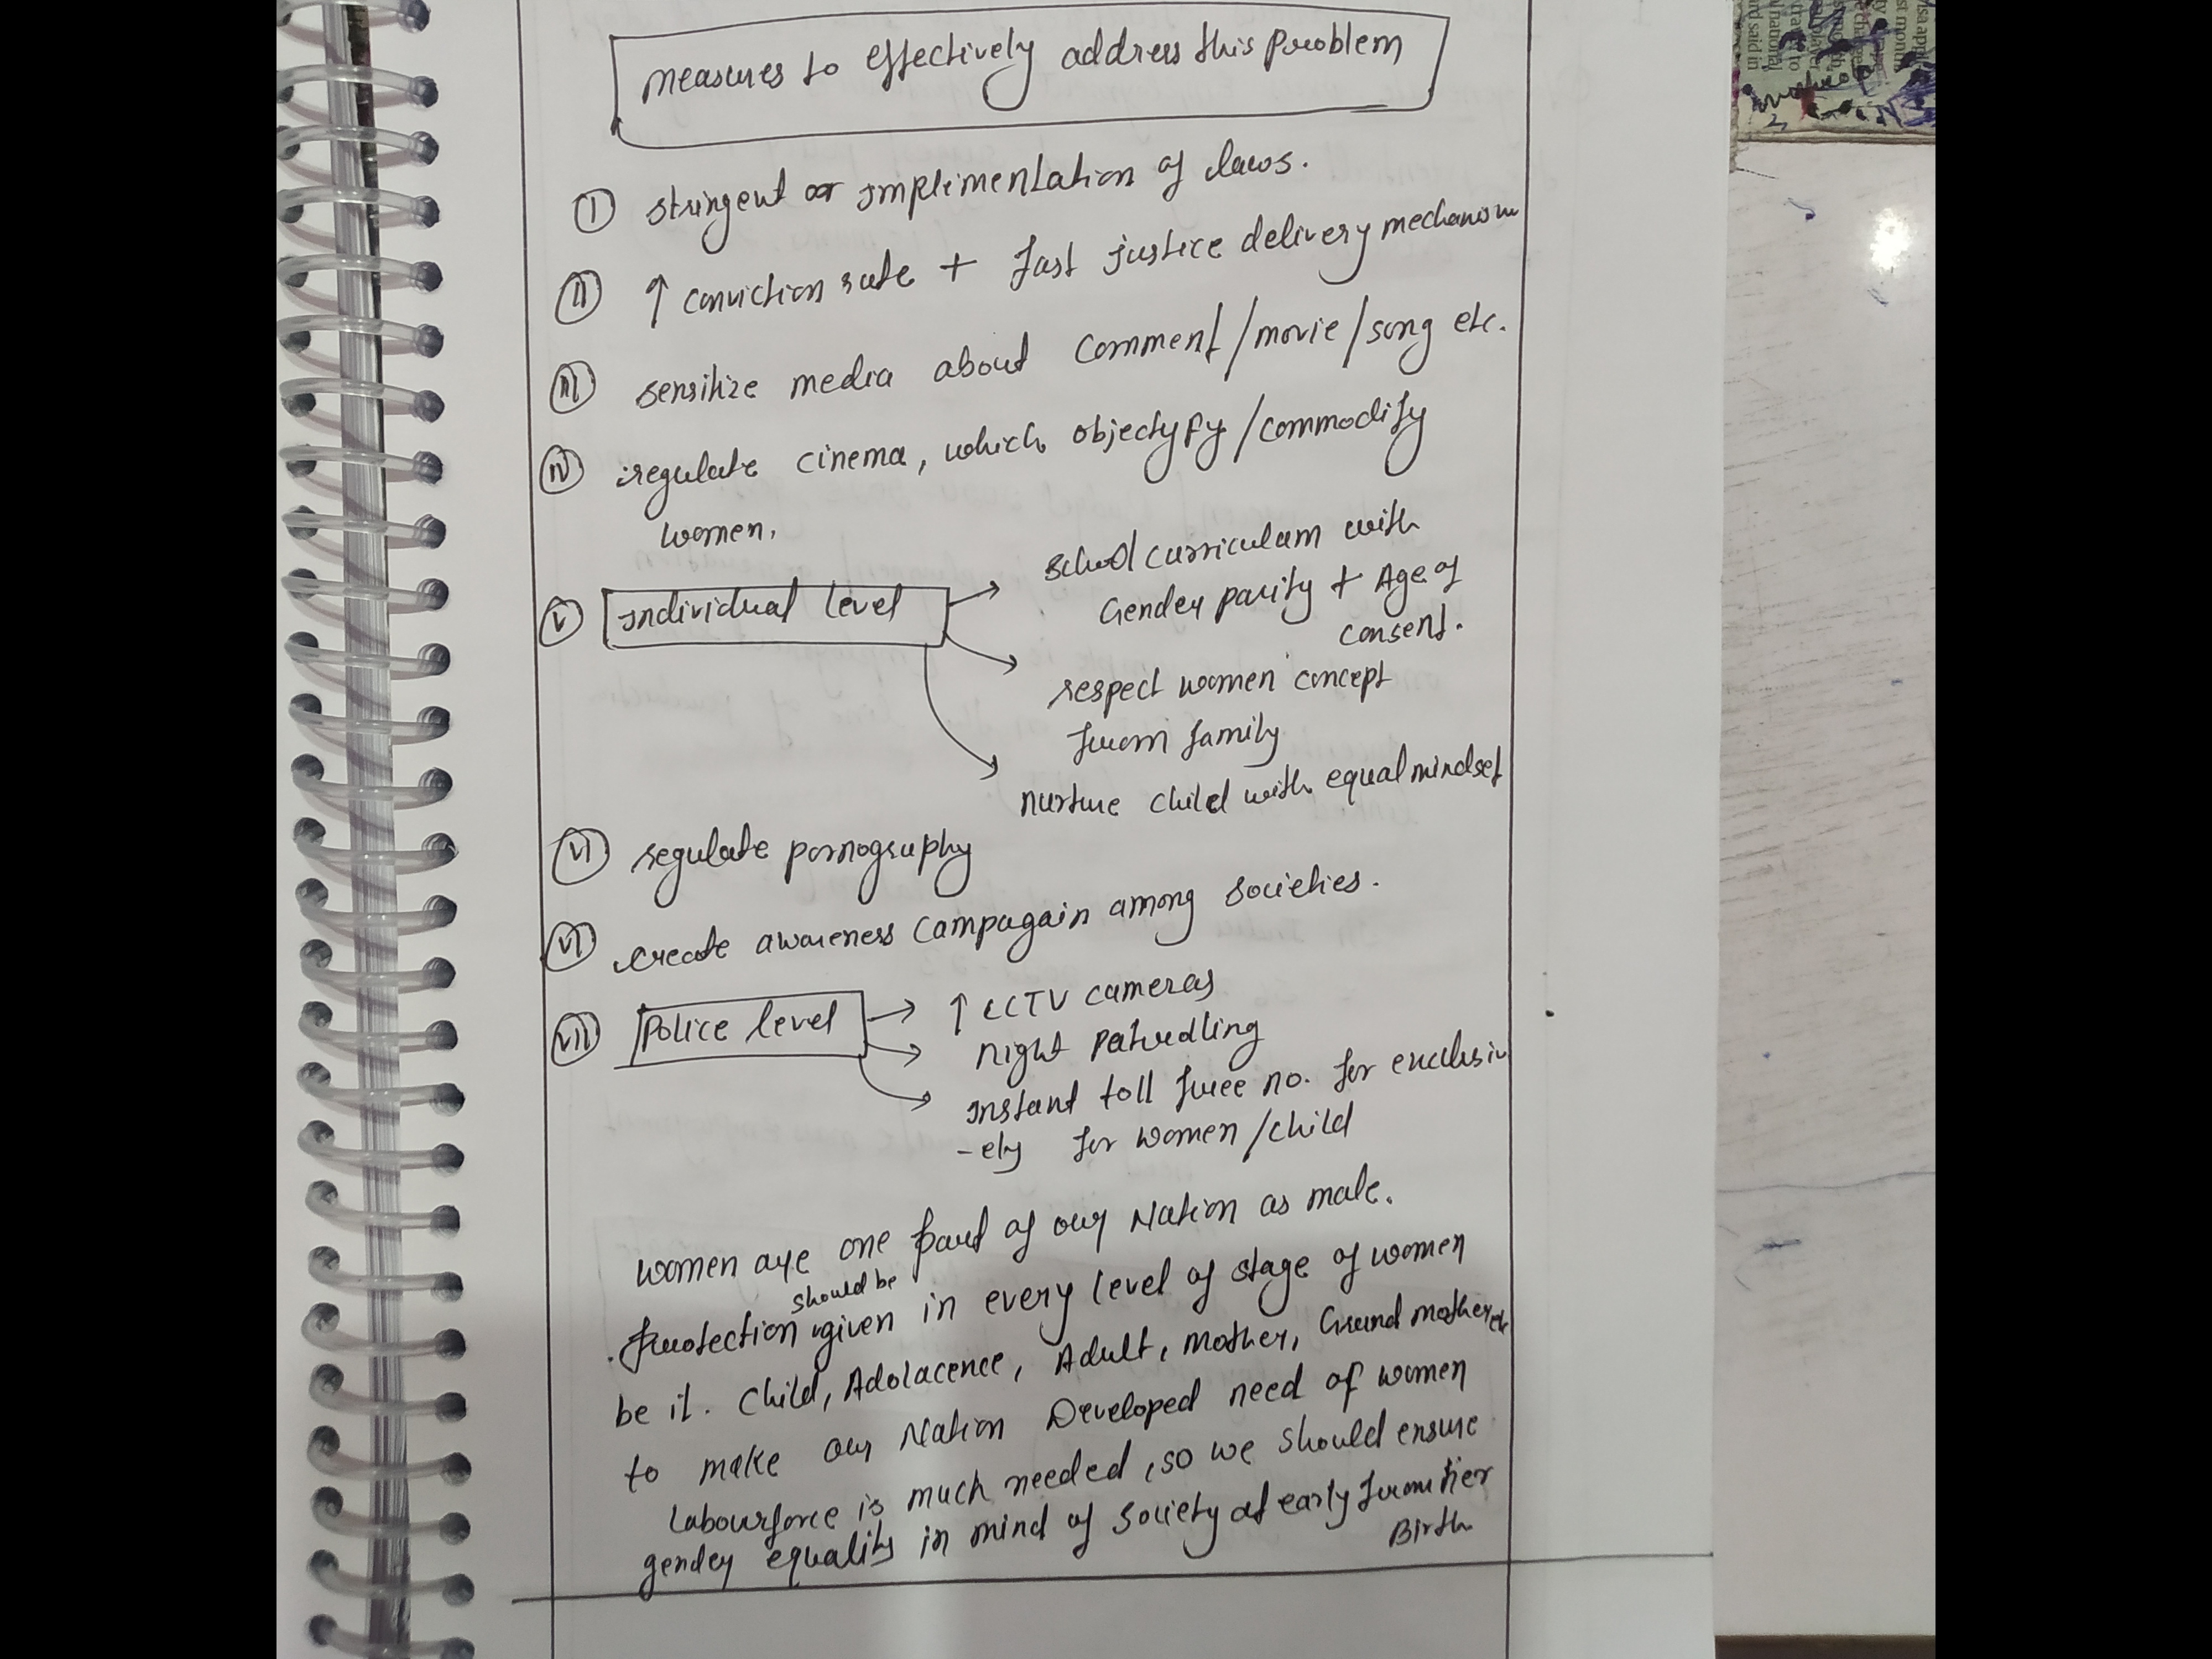 measures to effectively address this problem
I stringent or implimentation of laws.
II ↑ conviction rate + fast justice delivery mechanism
III sensitize media about comment/movie/song etc.
IV regulate cinema, which objectyfy/commodify
women.
V Individual level → school curriculam with
Gender parity + Age of
consent.
→ respect women concept
from family
→ nurture child with equal mindset
VI regulate pornography
VI create awareness campagain among societies.
VII Police level → ↑ CCTV cameras
→ night patrolling
→ Instant toll free no. for exclusiv
-ely for women/child
women are one part of our Nation as male.
should be
Protection given in every level of stage of women
be it. Child, Adolacence, Adult, Mother, Grand mother etc
to make our Nation Developed need of women
labourforce is much needed, so we should ensure
gender equality in mind of society at early from
Birth